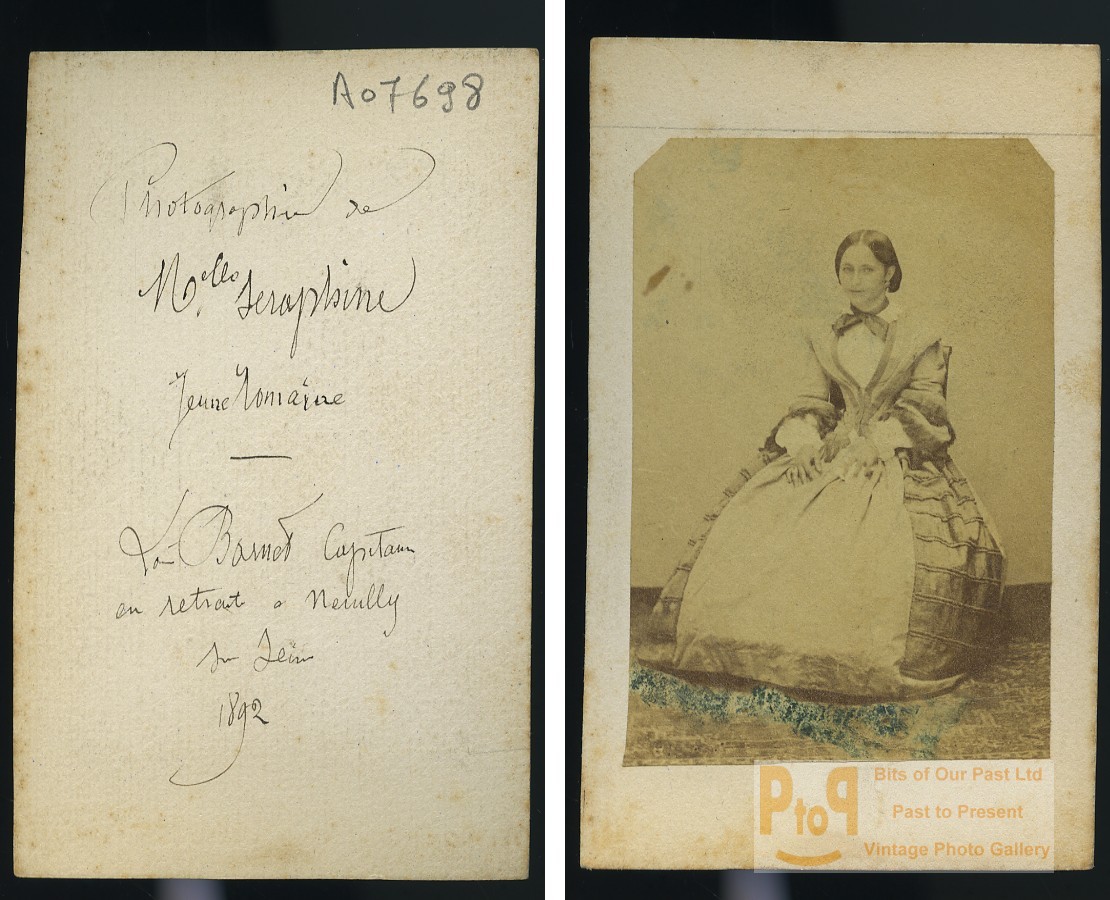 A07698
Photographie de
Melle Seraphine
Jeune Romaine
Barnet Capitaine
en retraite a Neuilly
sur Seine
1892
PtoP
Bits of Our Past Ltd
Past to Present
Vintage Photo Gallery